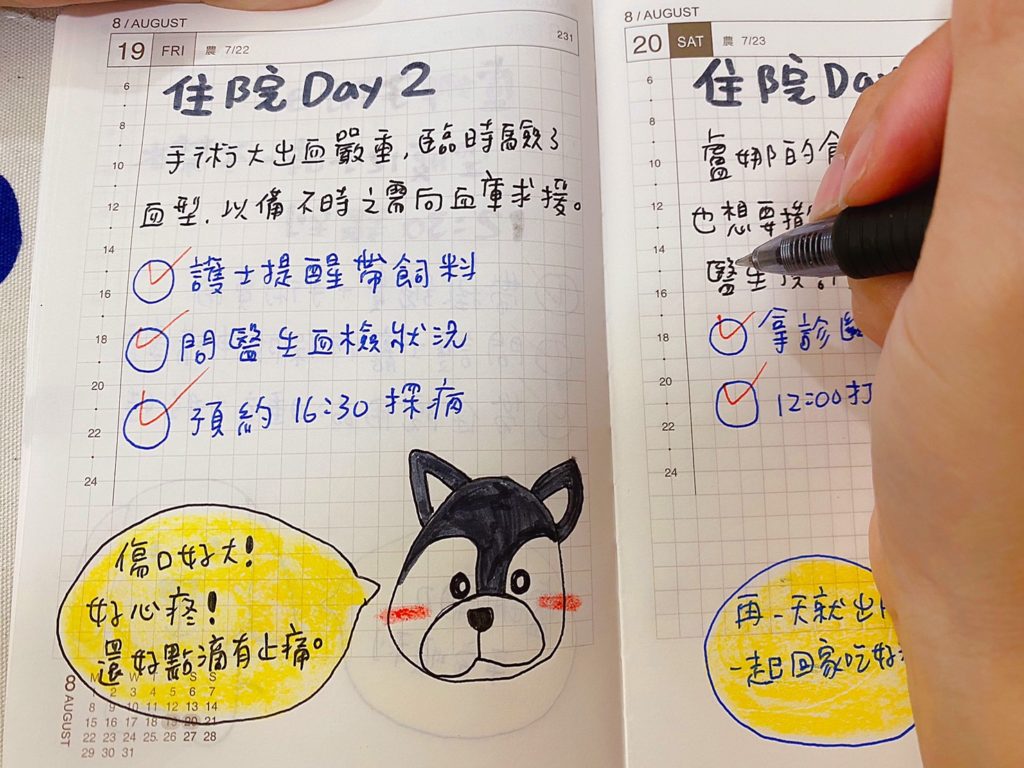 8 / AUGUST
19 FRI 農 7/22
231
住院 Day 2
手術大出血嚴重，臨時驗了
血型，以備不時之需向血庫求援。
護士提醒帶飼料
問醫生血檢狀況
預約 16:30 探病
6
8
10
12
14
16
18
20
22
24
傷口好大！
好心疼！
還好點滴有止痛。
8 AUGUST
M T W T F S S
1 2 3 4 5 6 7
8 9 10 11 12 13 14
15 16 17 18 19 20 21
22 23 24 25 26 27 28
29 30 31
8 / AUGUST
20 SAT 農 7/23
住院 Day
盧娜的
也想要
醫生
拿診
12:00 打
6
8
10
12
14
16
18
20
22
24
再一天就出
一起回家吃好